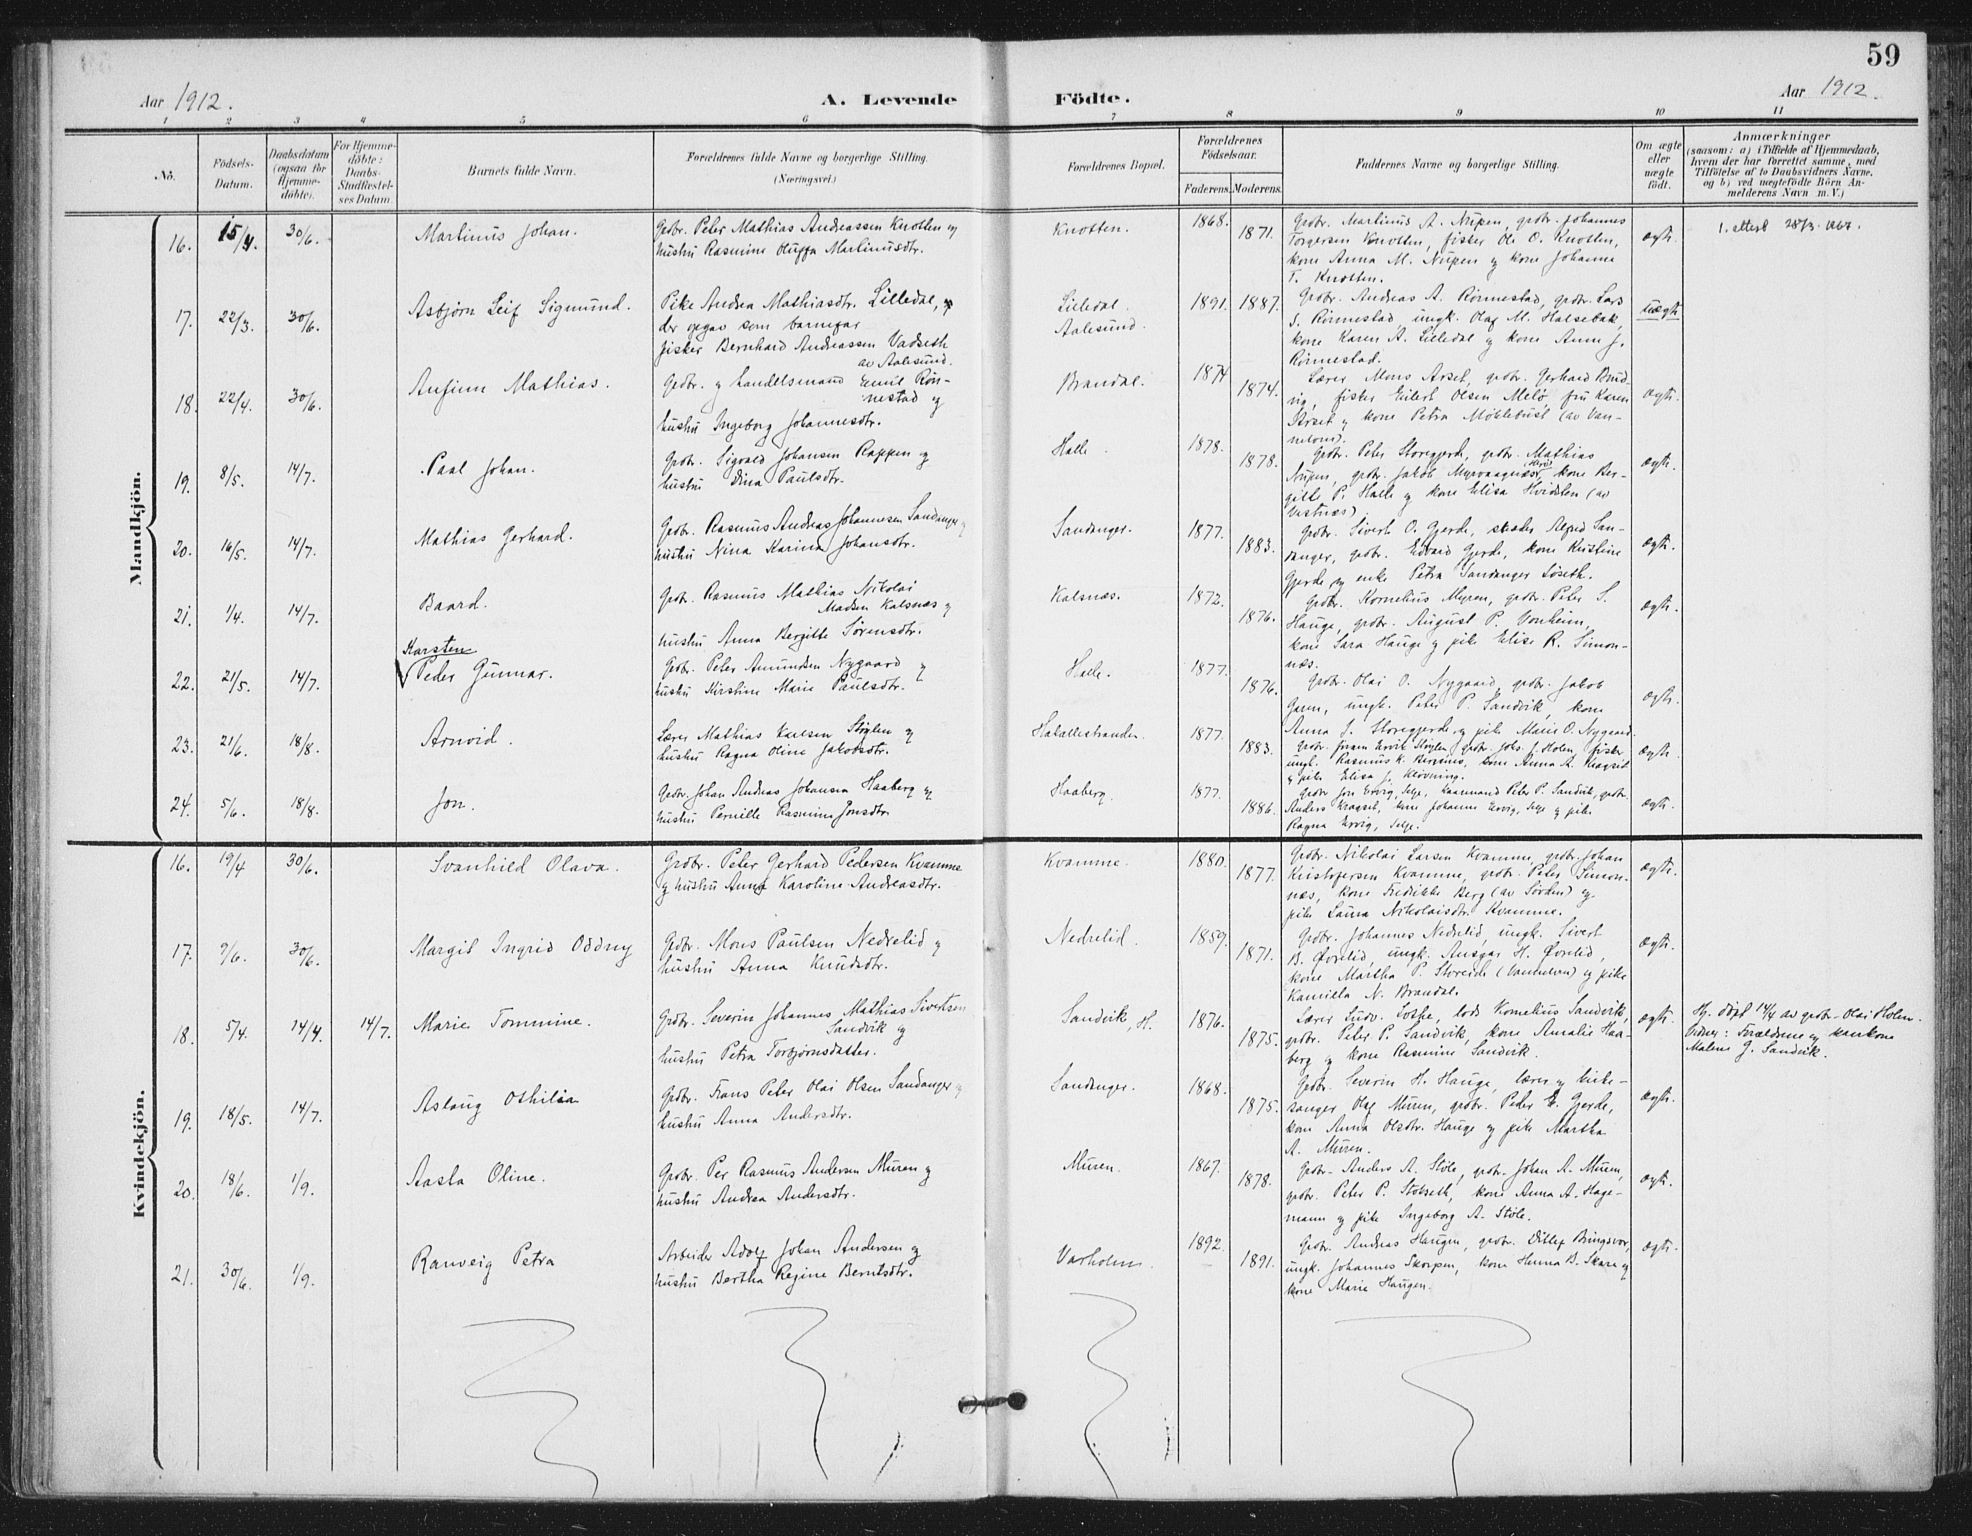 59
Aar 1912.
A. Levende
Födte.
Aar 1912.
1 2 3 4 5 6 7 8 9 10 11
No.
Födsels-Datum.
Daabsdatum (ogsaa for Hjemmedöbte).
For Hjemmedöbte: Daabs-Stadfæstelses Datum.
Barnets fulde Navn.
Forældrenes fulde Navne og borgerlige Stilling.
(Næringsvei.)
Forældrenes Bopæl.
Forældrenes Födselsaar.
Faderens. Moderens.
Faddernes Navne og borgerlige Stilling.
Om ægte eller uægte födt.
Anmærkninger
(saasom: a) i Tilfælde af Hjemmedaab, hvem der har forrettet samme, med Tilföielse af to Daabsvidners Navne, og b) ved uægtefödte Börn Anmelderens Navn m. V.)
Mandkjön.
16. 15/4 30/6. Martinus Johan.
Gdbr. Peter Mathias Andreassen Knotten og
hustru Rasmine Oluffa Martinusdtr.
Knotten. 1868. 1871.
Gdbr. Martinus A. Nupen, gdbr. Johannes
Torgersen Knotten, fisker Ole O. Knotten,
kone Anna M. Nupen og kone Johanna
T. Knotten.
ægte.
1. attest 28/3. 1967.
17. 22/3. 30/6. Asbjørn Leif Sigmund.
Pike Andrea Mathiasdtr. Lilledal, og
der opgav som barnefar
fisker Bernhard Andreassen Vadseth
av Aalesund.
Lilledal.
Aalesund.
1891. 1887.
Gdbr. Andreas A. Rønnestad, gdbr. Lars
S. Rønnestad, ungk. Olaf M. Halsebak,
kone Karen A. Lilledal og kone Anne J.
Rønnestad.
uægte
18. 22/4. 30/6. Anfinn Mathias.
Gdbr. og handelsmand Emil Røn-
nestad og
hustru Ingeborg Johannesdtr.
Brandal. 1874 1874.
Lærer Mons Aarset, gdbr. Gerhard
fisker Eilert Olsen Melø, fru Karen
Aarset og kone Petra Møklebust (av Van-
nelven).
ægte.
19. 8/5. 14/7. Paal Johan.
Gdbr. Sigvald Johansen Rappen og
hustru Dina Paulsdtr.
Halle. 1878. 1878.
Gdbr. Peter Storegjerde, gdbr. Mathias
Nupen, gdbr. Jakob kone Ber-
gitte P. Halle og kone Elisa Hvidsten (av
Vestnæs).
ægte.
20. 16/5. 14/7. Mathias Gerhard.
Gdbr. Rasmus Andreas Johannesen Sandanger og
hustru Nina Karina Johansdtr.
Sandanger. 1877. 1883.
Gdbr. Sivert O. Gjerde, Alfred San-
danger, gdbr. Edvard Gjerde, kone Kristine
Gjerde og enke Petra Sandanger Løseth.
ægte.
21. 1/4. 14/7. Baard.
Gdbr. Rasmus Mathias Nikolai
Madsen Kalsnæs og
hustru Anna Bergitte Sørensdtr.
Kalsnæs. 1872. 1876.
Gdbr. Kornelius Myren, gdbr. Peter S.
Hauge, gdbr. August P. Vonheim,
kone Sara Hauge og pike Elise R. Simon-
næs.
ægte.
22. 21/5. 14/7. Karsten
Peder Gunnar.
Gdbr. Peter Amundsen Nygaard og
hustru Kirstine Marie Paulsdtr.
Halle. 1877. 1876.
Gdbr. Olai O. Nygaard, gdbr. Jakob
ungk. Peter P. Sandvik, kone
Anna J. Storegjerde og pike Marie O. Nygaard.
ægte.
23. 21/6. 18/8. Arnvid.
Lærer Mathias Karlsen Støylen og
hustru Ragna Oline Jakobsdtr.
Hakallestranden 1877. 1883.
Støylen, gdbr. Johs. J. Holen, fisker
ungk. Rasmus K. Bergsnes, kone Anna A. Kragset
og pike Elisa J. Kløvning.
ægte.
24. 5/6. 18/8. Jon.
Gdbr. Johan Andreas Johansen Haaberg og
hustru Pernille Rasmine Jonsdtr.
Haaberg. 1877. 1886.
Gdbr. Jon Ervig, Selje, kaarmand Peter P. Sandvik, gdbr.
Anders Kragset, kone Johanne Ervig, Selje og pike
Ragna Ervig, Selje.
ægte.
Kvindekjön.
16. 19/4 30/6. Svanhild Olava.
Gdbr. Peter Gerhard Pedersen Kvamme
og hustru Anna Karoline Andreasdtr.
Kvamme. 1880. 1877.
Gdbr. Nikolai Larsen Kvamme, gdbr. Johan
Kristofersen Kvamme, gdbr. Peter Simon-
næs, kone Fredrikke Berg (av Sørden) og
pike Laura Nikolaisdtr. Kvamme.
ægte.
17. 9/6. 30/6. Margit Ingrid Oddny
Gdbr. Mons Paulsen Nedrelid og
hustru Anna Knudsdtr.
Nedrelid. 1859. 1871.
Gdbr. Johannes Nedrelid, ungk. Sivert
B. Øvrelid, ungk. Ansgar H. Øvrelid,
kone Martha P. Storeide (Vannelven) og pike
Kamilla N. Brandal.
ægte.
18. 5/4. 14/4 14/7. Marie Tommine.
Gdbr. Severin Johannes Mathias Sivertsen
Sandvik og
hustru Petra Torbjørnsdatter.
Sandvik, H. 1876. 1875.
Lærer Ludv. lods Kornelius Sandvik,
gdbr. Peter P. Sandvik, kone Amalie Haa-
berg og kone Rasmine Sandvik.
ægte.
Hj. døpt 14/4 av gdbr. Olai Holen.
Vidner: Forældrene og kaarkone
Malene J. Sandvik.
19. 18/5. 14/7. Aslaug Othilia
Gdbr. Frans Peter Olai Olsen Sandanger og
hustru Anna Andersdtr.
Sandanger. 1868. 1875.
Gdbr. Severin H. Hauge, lærer og kirke-
sanger Olaf Muren, gdbr. Peder E. Gjerde,
kone Anna Olsdtr. Hauge og pike Martha
A. Muren.
ægte.
20. 18/6. 1/9. Aasta Oline.
Gdbr. Per Rasmus Andersen Muren og
hustru Andrea Andersdtr.
Muren. 1867. 1878.
Gdbr. Anders A. Støle, gdbr. Johan A. Muren,
gdbr. Peter P. Stokseth, kone Anna A. Hage-
mann og pike Ingeborg A. Støle.
ægte.
21. 30/6. 1/9. Ranveig Petra
Arbeider Adolf Johan Andersen og
hustru Bertha Regine Berntsdtr.
Varholm. 1892. 1891.
Gdbr. Andreas Haugen, gdbr. Ditlef Bringsvor,
ungk. Johannes Skorpen, kone Hanna B. Skare og
kone Marie Haugen.
ægte.